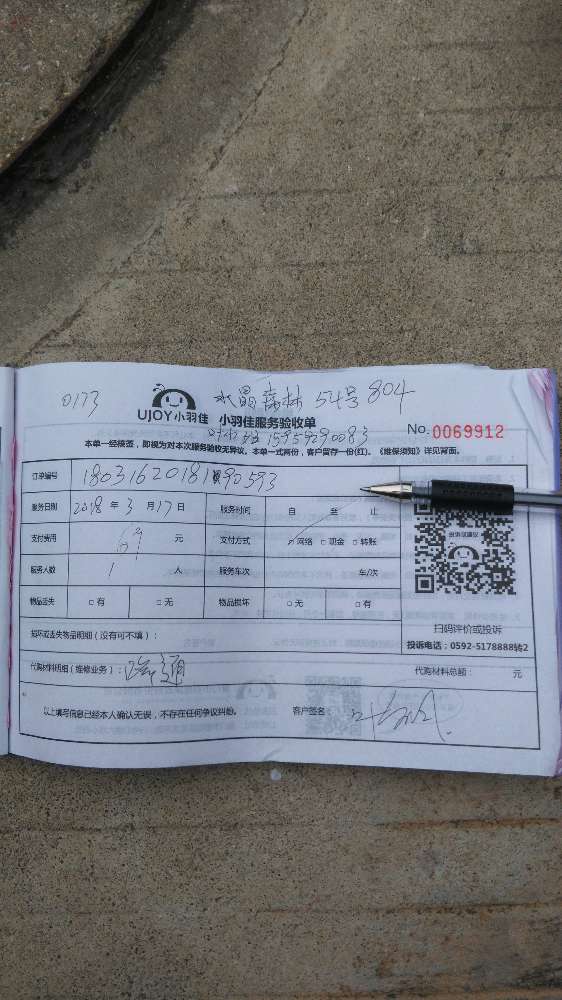 0173 水晶森林 54号 804
UJOY小羽佳 小羽佳服务验收单
15959290083 No. 0069912
本单一经接签，即视为对本次服务验收无异议。本单一式两份，客户留存一份(红)。《维保须知》详见背面。
订单编号 18031620181 90593
服务日期 2018 年 3 月 17 日 服务时间 自 至 止
支付费用 69 元 支付方式 网络 □ 现金 □ 转账
服务人数 1 人 服务车次 车/次
物品丢失 □ 有 □ 无 物品损坏 □ 无 □ 有
扫码评价或投诉
投诉电话：0592-5178888转2
损坏或丢失物品明细（没有可不填）：
代购材料明细(维修业务)：疏通 代购材料总额： 元
以上填写信息已经本人确认无误，不存在任何争议纠纷。 客户签名：